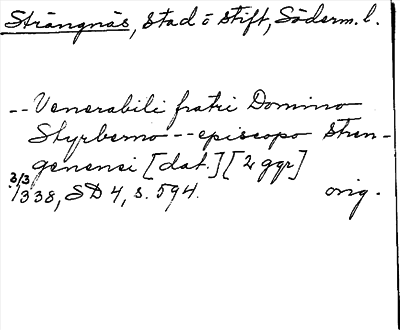 Strängnäs, stad o stift, Söderm. l.
-- Venerabili fratri Domino
Styrberno -- episcopo Stren-
genensi [dat.] [2 ggr]
3/3 1338, SD 4, s. 594. orig.